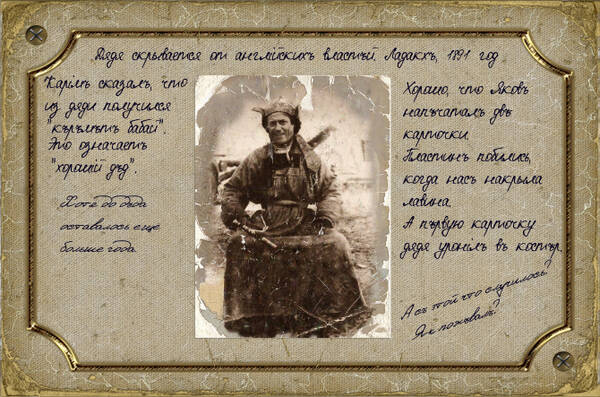 Дядя скрывается от англiйскихъ властѣй. Ладакхъ, 1891 год
Карiмъ сказалъ, что
из дяди получился
"кърълмън бабай".
Это означаетъ
"хорошiй дѣд".
Хотя до дѣда
оставалось еще
больше года.
Хорошо, что Яковъ
напѣчаталъ двѣ
карточки.
Пластинъ побились,
когда насъ накрыла
лавина.
А първую карточку
дядя уронiлъ въ костър.
А съ той что случилось?
Як пожъвалъ?